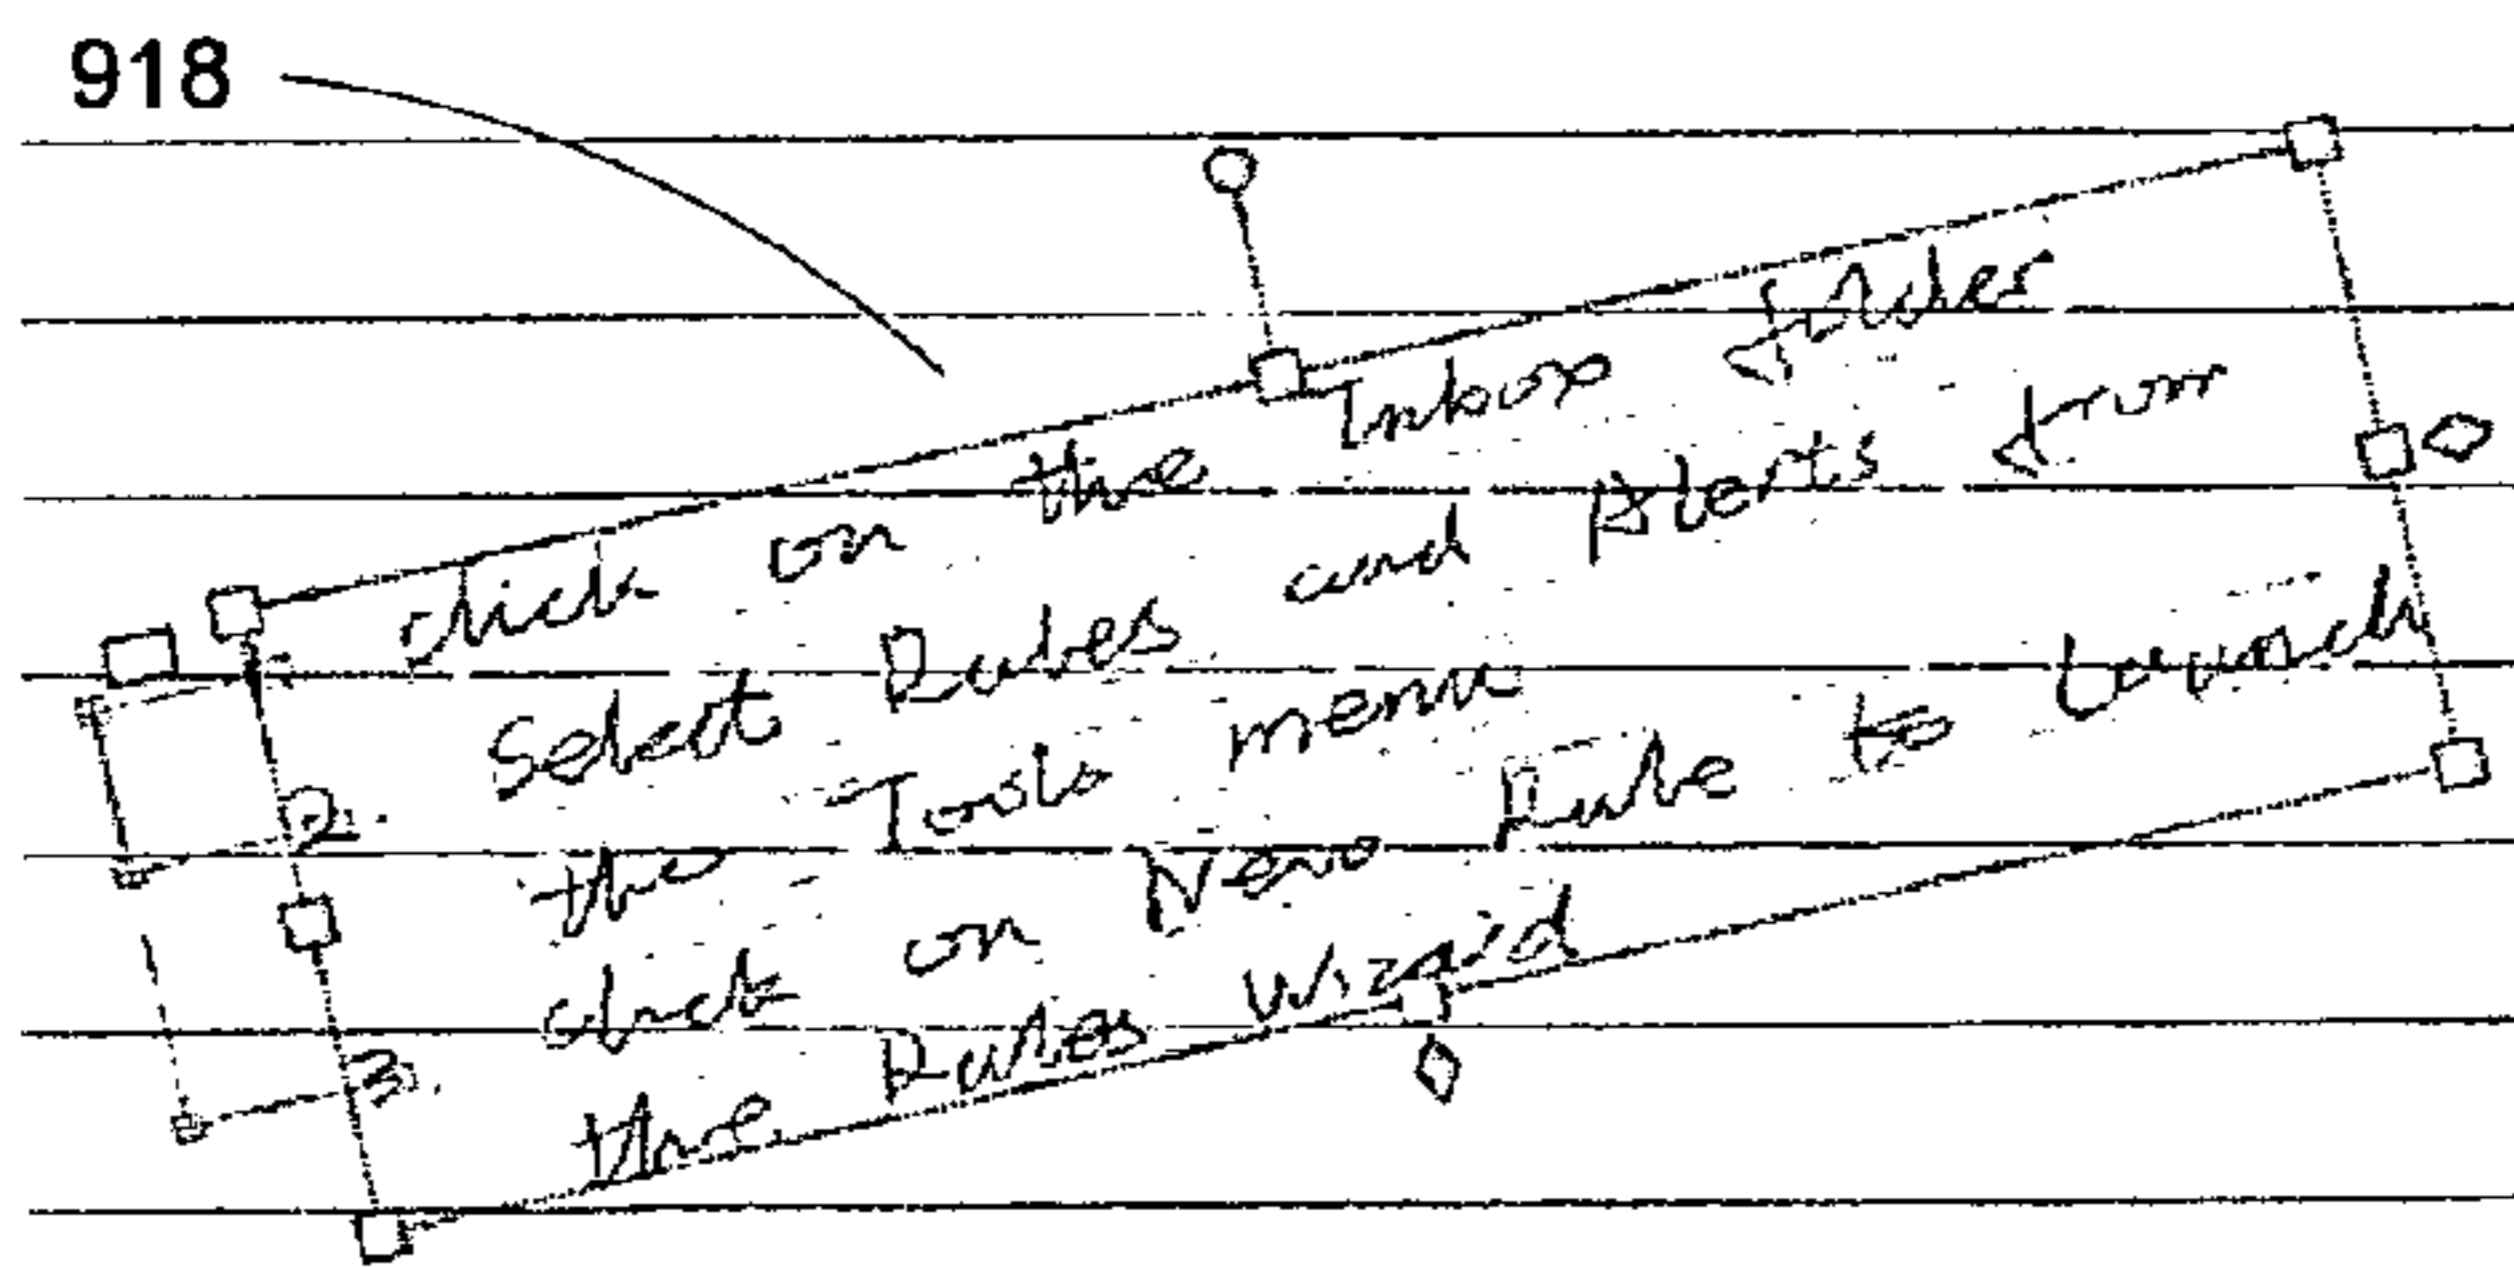 918
click on the Inbox folder
2. Select Rules and Alerts from
the Tools menu
3. click on New Rule to launch
the Rules wizard